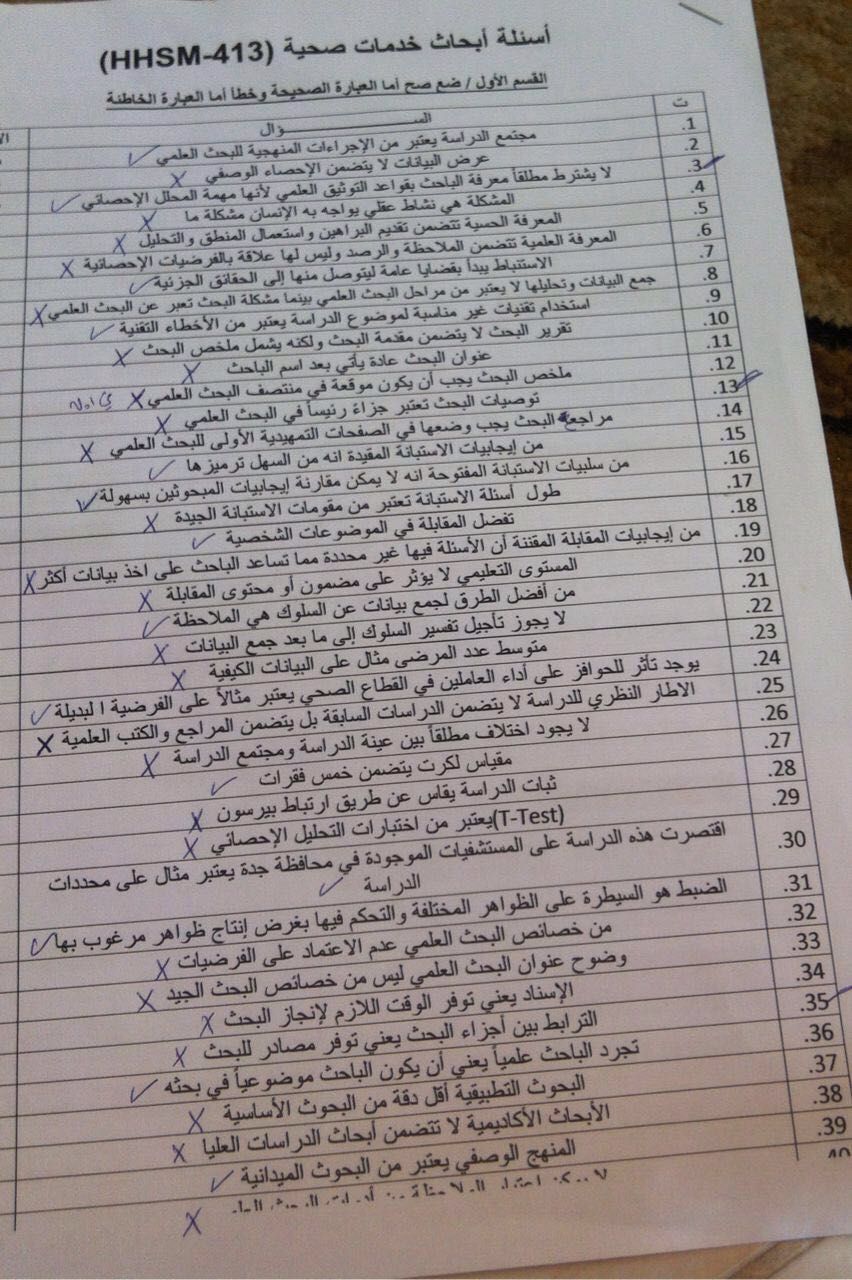 أسئلة أبحاث خدمات صحية (HHSM-413)
القسم الأول / ضع صح أما العبارة الصحيحة وخطأ أما العبارة الخاطئة
ت الســـــــؤال
1. مجتمع الدراسة يعتبر من الإجراءات المنهجية للبحث العلمي ✓
2. عرض البيانات لا يتضمن الإحصاء الوصفي X
3. لا يشترط مطلقاً معرفة الباحث بقواعد التوثيق العلمي لأنها مهمة المحلل الإحصائي ✓
4. المشكلة هي نشاط عقلي يواجه به الإنسان مشكلة ما X
5. المعرفة الحسية تتضمن تقديم البراهين واستعمال المنطق والتحليل X
6. المعرفة العلمية تتضمن الملاحظة والرصد وليس لها علاقة بالفرضيات الإحصائية X
7. الاستنباط يبدأ بقضايا عامة ليتوصل منها إلى الحقائق الجزئية ✓
8. جمع البيانات وتحليلها لا يعتبر من مراحل البحث العلمي بينما مشكلة البحث تعبر عن البحث العلمي X
9. استخدام تقنيات غير مناسبة لموضوع الدراسة يعتبر من الأخطاء التقنية ✓
10. تقرير البحث لا يتضمن مقدمة البحث ولكنه يشمل ملخص البحث X
11. عنوان البحث عادة يأتي بعد اسم الباحث X
12. ملخص البحث يجب أن يكون موقعة في منتصف البحث العلمي X
13. توصيات البحث تعتبر جزاءً رئيساً في البحث العلمي X
14. مراجع البحث يجب وضعها في الصفحات التمهيدية الأولى للبحث العلمي X
15. من إيجابيات الاستبانة المقيدة انه من السهل ترميزها ✓
16. من سلبيات الاستبانة المفتوحة انه لا يمكن مقارنة إيجابيات المبحوثين بسهولة ✓
17. طول أسئلة الاستبانة تعتبر من مقومات الاستبانة الجيدة X
18. تفضل المقابلة في الموضوعات الشخصية ✓
19. من إيجابيات المقابلة المقننة أن الأسئلة فيها غير محددة مما تساعد الباحث على اخذ بيانات أكثر X
20. المستوى التعليمي لا يؤثر على مضمون أو محتوى المقابلة X
21. من أفضل الطرق لجمع بيانات عن السلوك هي الملاحظة ✓
22. لا يجوز تأجيل تفسير السلوك إلى ما بعد جمع البيانات X
23. متوسط عدد المرضى مثال على البيانات الكيفية X
24. يوجد تأثر للحوافز على أداء العاملين في القطاع الصحي يعتبر مثالاً على الفرضية ا لبديلة ✓
25. الاطار النظري للدراسة لا يتضمن الدراسات السابقة بل يتضمن المراجع والكتب العلمية X
26. لا يجود اختلاف مطلقاً بين عينة الدراسة ومجتمع الدراسة X
27. مقياس لكرت يتضمن خمس فقرات ✓
28. ثبات الدراسة يقاس عن طريق ارتباط بيرسون X
29. (T-Test)يعتبر من اختبارات التحليل الإحصائي X
30. اقتصرت هذه الدراسة على المستشفيات الموجودة في محافظة جدة يعتبر مثال على محددات
الدراسة ✓
31. الضبط هو السيطرة على الظواهر المختلفة والتحكم فيها بغرض إنتاج ظواهر مرغوب بها ✓
32. من خصائص البحث العلمي عدم الاعتماد على الفرضيات X
33. وضوح عنوان البحث العلمي ليس من خصائص البحث الجيد X
34. الإسناد يعني توفر الوقت اللازم لإنجاز البحث X
35. الترابط بين أجزاء البحث يعني توفر مصادر للبحث X
36. تجرد الباحث علمياً يعني أن يكون الباحث موضوعياً في بحثه ✓
37. البحوث التطبيقية أقل دقة من البحوث الأساسية X
38. الأبحاث الأكاديمية لا تتضمن أبحاث الدراسات العليا X
39. المنهج الوصفي يعتبر من البحوث الميدانية ✓
40. X